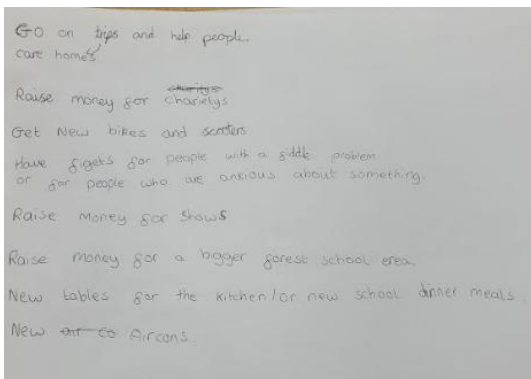 GO on trips and help people.
care homes
Raise money for charietys
Get New bikes and scooters
Have figets for people with a fiddle problem
or for people who are anxious about something.
Raise money for shows
Raise money for a bigger forest school erea.
New tables for the kitchen/or new school dinner meals.
New air co Aircons.